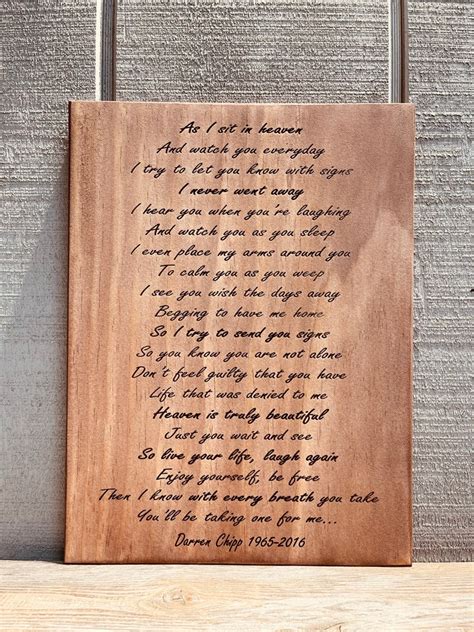 As I sit in heaven
And watch you everyday
I try to let you know with signs
I never went away
I hear you when you're laughing
And watch you as you sleep
I even place my arms around you
To calm you as you weep
I see you wish the days away
Begging to have me home
So I try to send you signs
So you know you are not alone
Don't feel guilty that you have
Life that was denied to me
Heaven is truly beautiful
Just you wait and see
So live your life, laugh again
Enjoy yourself, be free
Then I know with every breath you take
You'll be taking one for me...
Darren Chipp 1965-2016